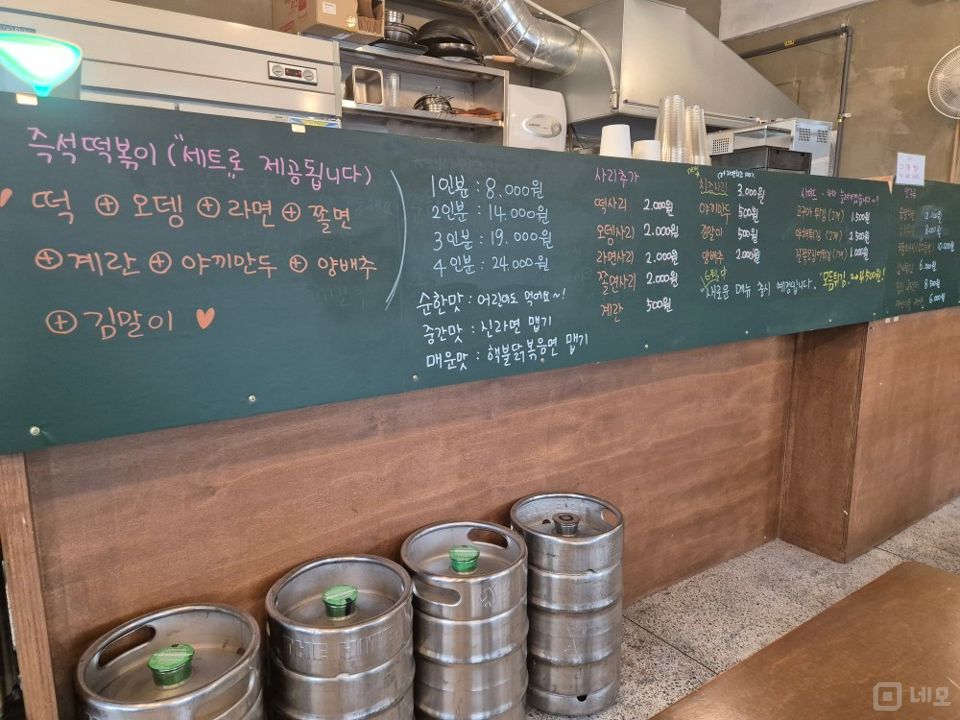 즉석떡볶이 ("세트"로 제공됩니다)
떡 ⊕ 오뎅 ⊕ 라면 ⊕ 쫄면
⊕ 계란 ⊕ 야끼만두 ⊕ 양배추
⊕ 김말이 ♥
1인분 : 8.000원
2인분 : 14.000원
3인분 : 19.000원
4인분 : 24.000원
순한맛 : 어린이도 먹어요~!
중간맛 : 신라면 맵기
매운맛 : 핵불닭볶음면 맵기
사리추가
떡사리 2.000원
오뎅사리 2.000원
라면사리 2.000원
쫄면사리 2.000원
계란 500원
치즈사리 3.000원
야끼만두 500원
김말이 500원
양배추 2.000원
새로운 메뉴 출시 예정입니다.
고구마 튀김 (2개) 1.500원
야채튀김 (2개) 2.500원
1.000원
모듬튀김 → 4.500원!
6.000원
THE HITE
네모